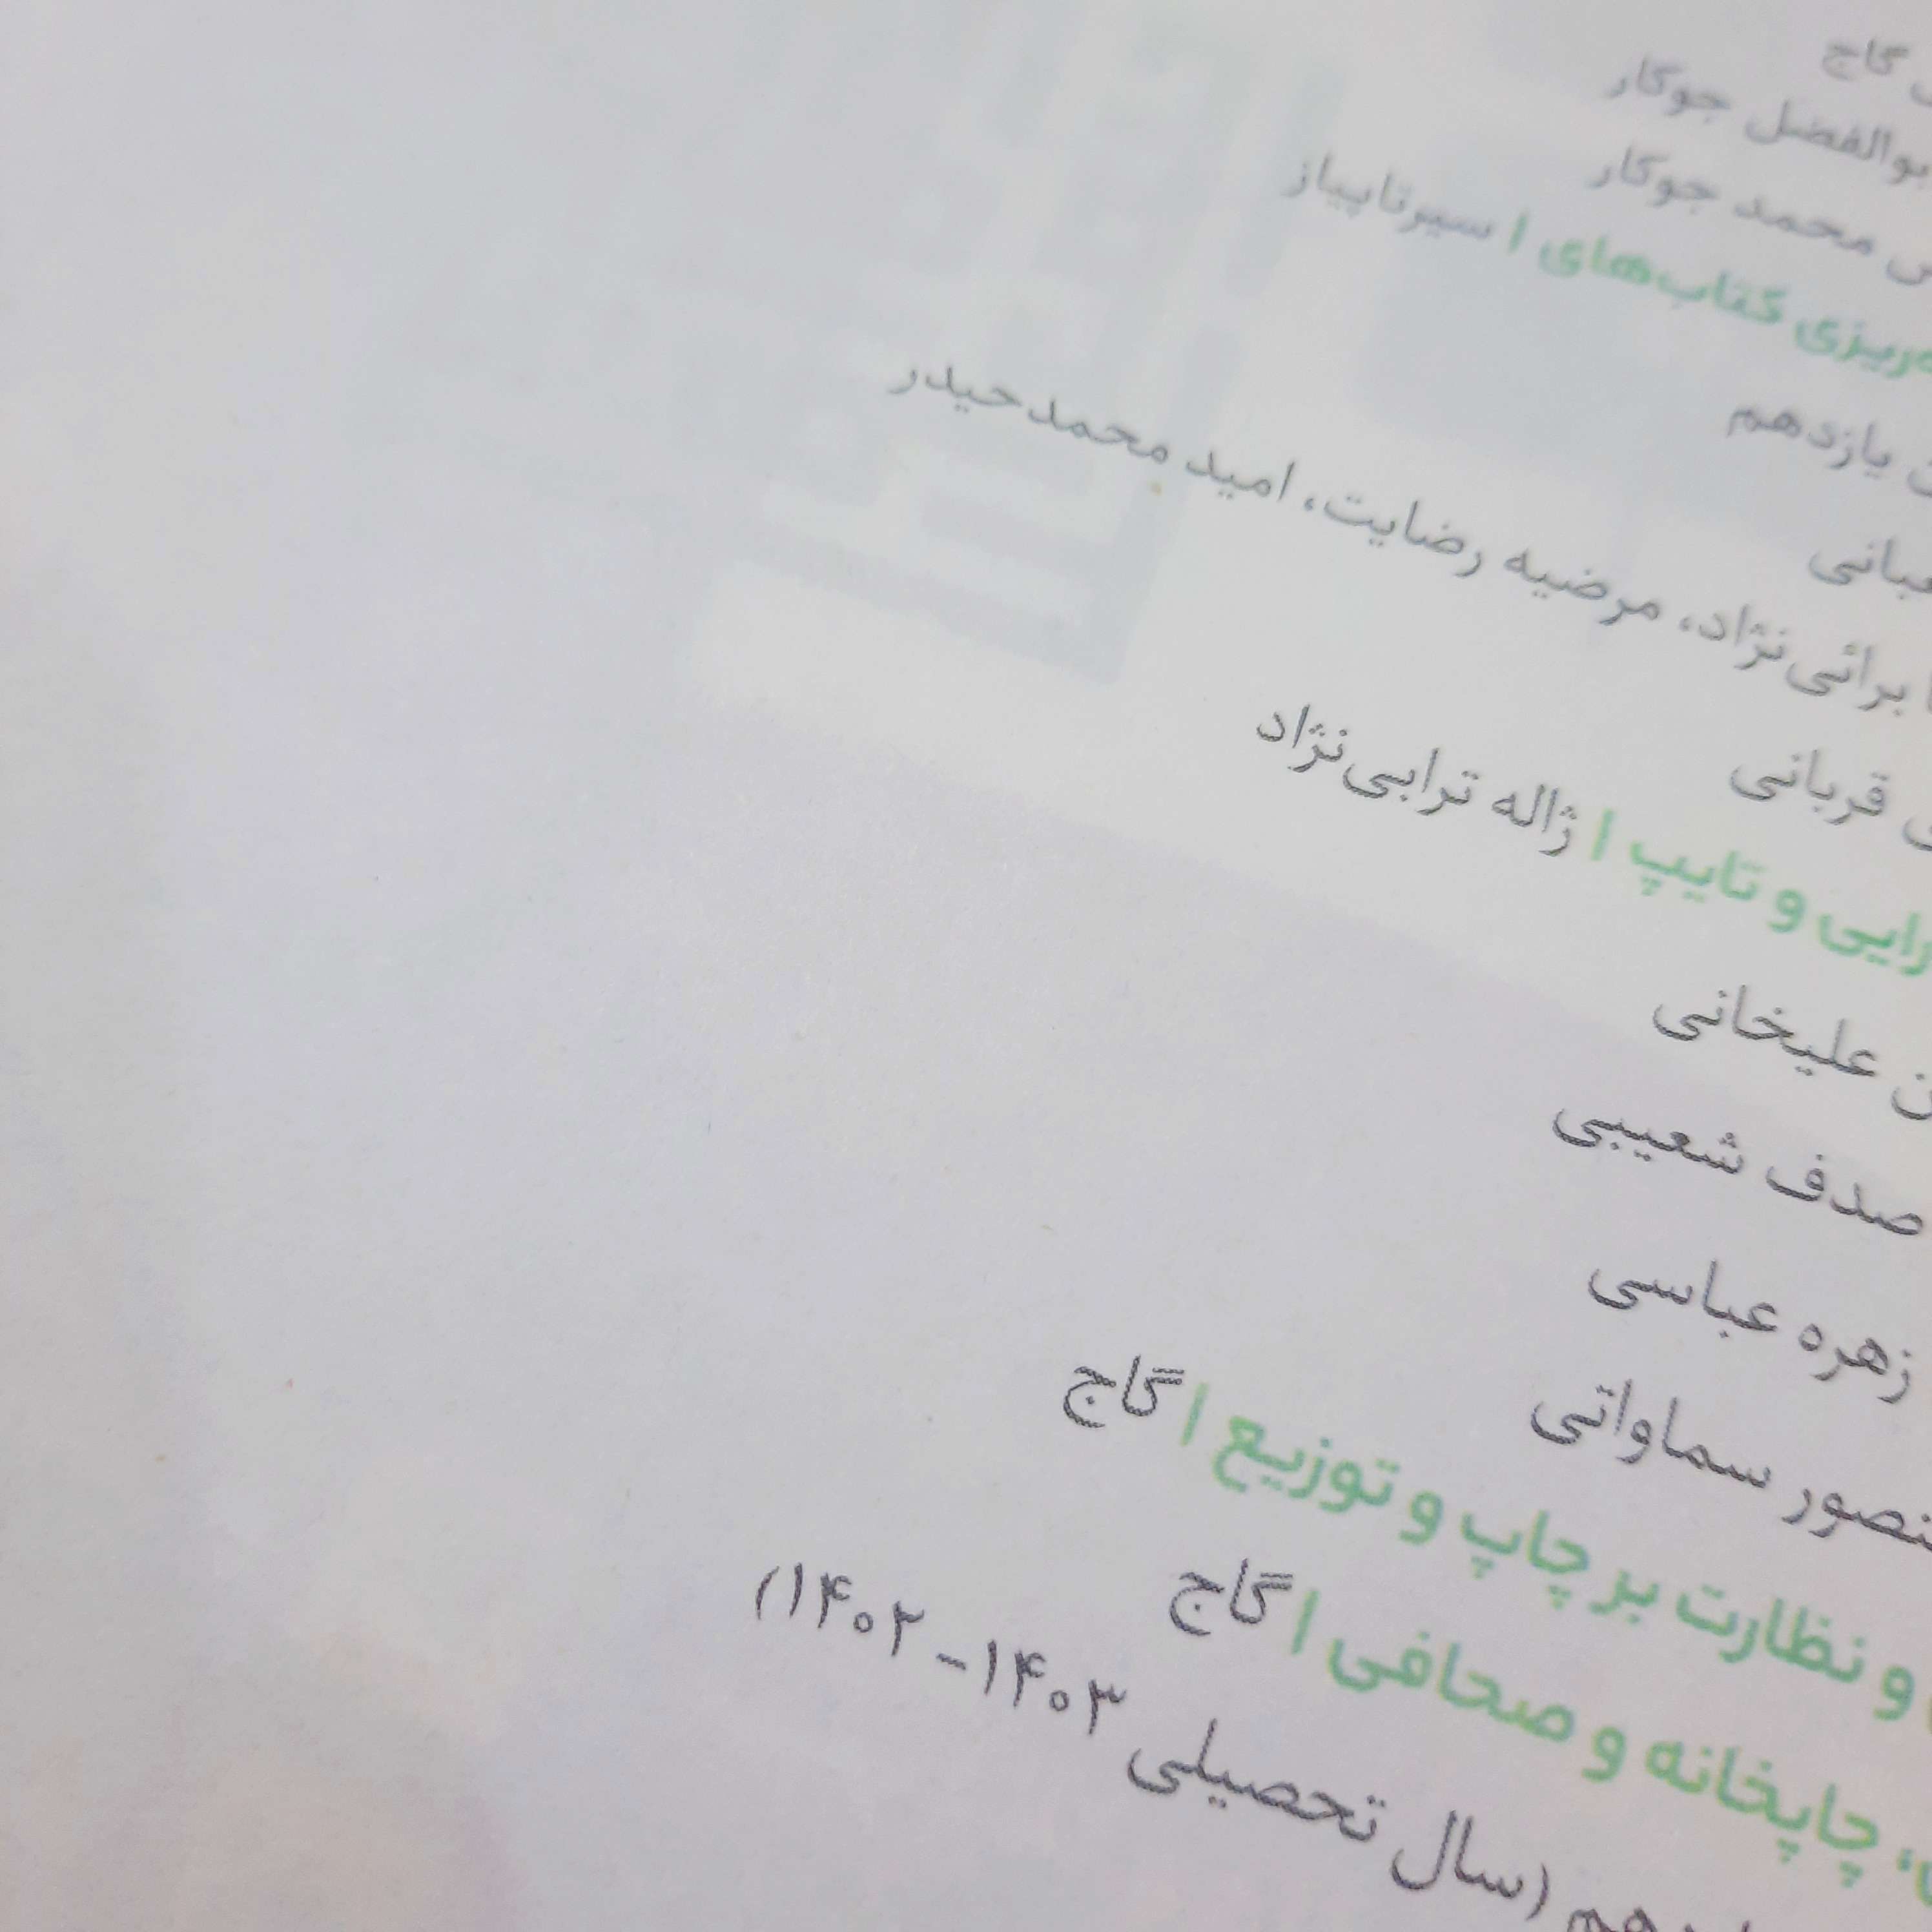 گاج
بوالفضل جوکار
محمد جوکار
ریزی کتاب‌های | سیرتاپیاز
یازدهم
برائی‌نژاد، مرضیه رضایت، امید محمدحیدر
قربانی
و تایپ | ژاله ترابی‌نژاد
علیخانی
صدف شعیبی
زهره عباسی
سماواتی
و نظارت بر چاپ و توزیع | گاج
چاپخانه و صحافی | گاج
(سال تحصیلی ۱۴۰۳-۱۴۰۲)